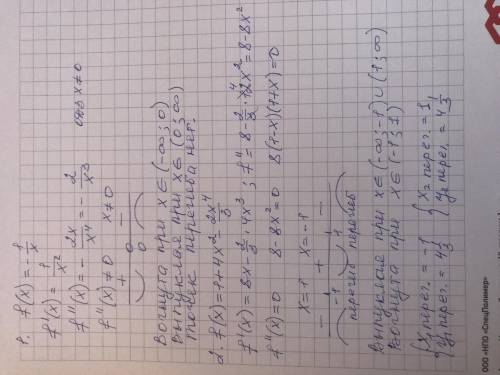 1. f(x) = -1/x
f'(x) = 1/x²
f''(x) = -2x/x⁴ = -2/x³ x≠0
f''(x) ≠ 0 x≠0
+ 0 -
Вогнута при x∈(-∞; 0)
Выпуклая при x∈(0; ∞)
Точек перегиба нет.
2. f(x) = 1+4x² - 2x⁴/3
f'(x) = 8x - 2/3 · 4x³ ; f'' = 8 - 2/3 · 12x² = 8-8x²
f''(x) = 0 8-8x²=0 8(1-x)(1+x)=0
x=1 x=-1
- -1 + 1 -
перегиб перегиб
Выпуклая при x∈(-∞;-1)∪(1;∞)
Вогнута при x∈(-1;1)
{x₁ перег. = -1 {x₂ перег. = 1
{y₁ перег. = 4 1/3 {y₂ перег. = 4 1/3
ООО «НПО «СпецПолимер»